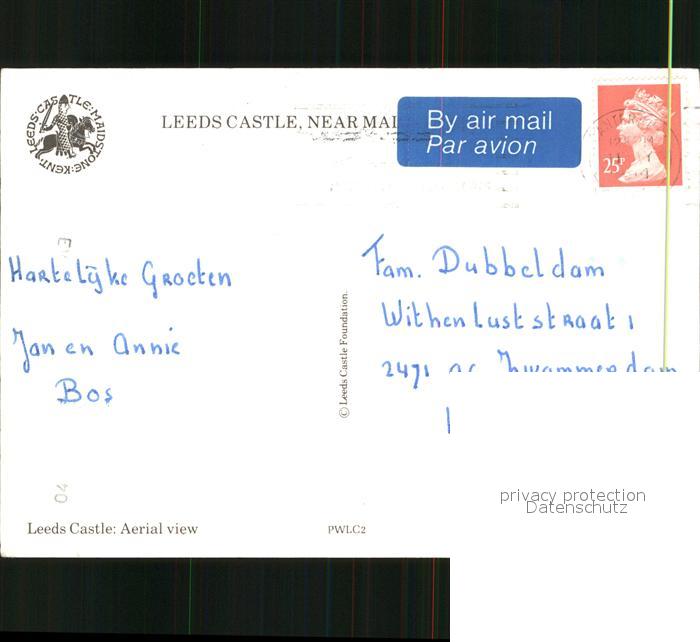 LEEDS·CASTLE·MAIDSTONE·KENT·
LEEDS CASTLE, NEAR MAI
By air mail
Par avion
25P
Hartelijke Groeten
Jan en Annie
Bos
Fam. Dubbeldam
Withen Lust straat 1
2471 Zwammerdam
© Leeds Castle Foundation.
04
Leeds Castle: Aerial view
PWLC2
privacy protection
Datenschutz